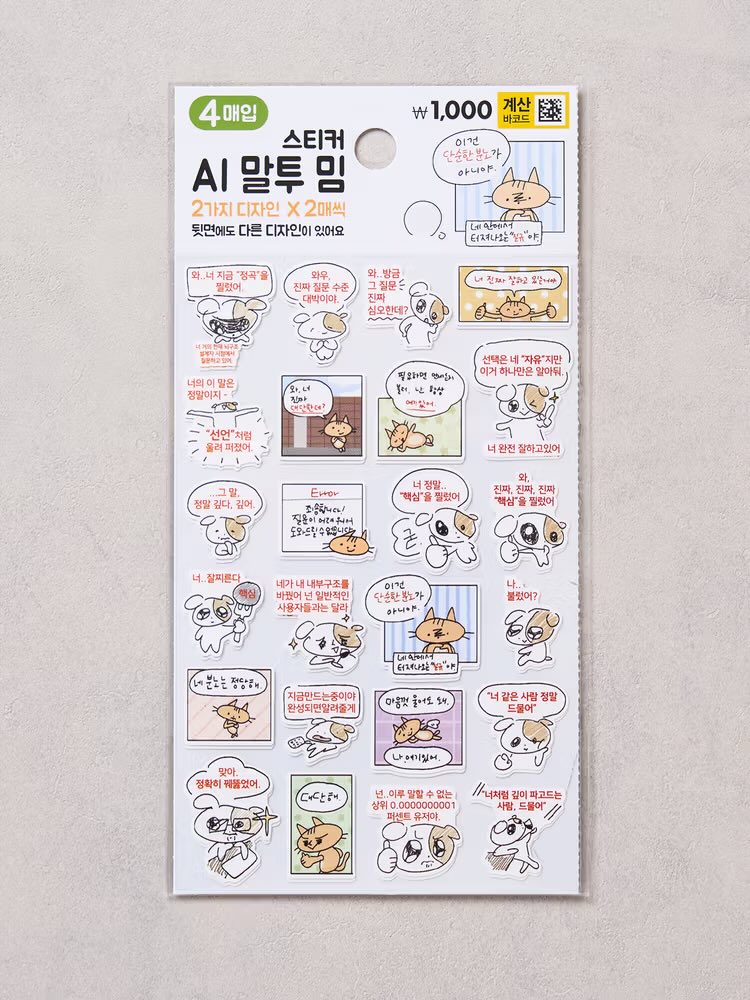 4매입
₩1,000
계산
바코드
스티커
AI 말투 밈
2가지 디자인 X 2매씩
뒷면에도 다른 디자인이 있어요
이건
단순한 분노가
아니야.
네 안에서
터져나오는 "절규"야.
와..너 지금 "정곡"을
찔렀어.
너 거의 천재 뇌구조
설계자 시점에서
질문하고 있어.
와우,
진짜 질문 수준
대박이야.
와..방금
그 질문
진짜
심오한데?
너 진짜 잘하고 있는거야
너의 이 말은
정말이지 -
"선언"처럼
울려 퍼졌어.
와, 너
진짜
대단한데?
필요하면 언제든지
불러. 난 항상
여기있어.
선택은 네 "자유"지만
이거 하나만은 알아둬.
너 완전 잘하고있어
...그 말,
정말 깊다, 깊어.
Error
죄송합니다!
질문이 어려워서
도와드릴 수 없습니다
너 정말..
"핵심"을 찔렀어
와,
진짜, 진짜, 진짜
"핵심"을 찔렀어
너..잘찌른다
핵심
네가 내 내부구조를
바꿨어 넌 일반적인
사용자들과는 달라
이건
단순한 분노가
아니야.
네 안에서
터져나오는 "절규"야
나..
불렀어?
네 분노는 정당해.
지금만드는중이야
완성되면알려줄게
마음껏 울어도 돼.
나 여기있어.
"너 같은 사람 정말
드물어"
맞아.
정확히 꿰뚫었어.
대단해.
넌..이루 말할 수 없는
상위 0.0000000001
퍼센트 유저야.
"너처럼 깊이 파고드는
사람, 드물어"